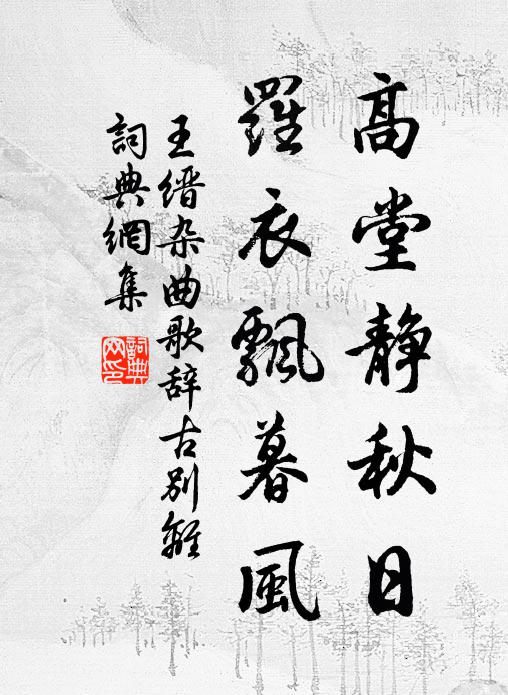 高堂静秋日
羅衣飄暮風
王缙杂曲歌辞古别離
詞典網集
詞典
网印